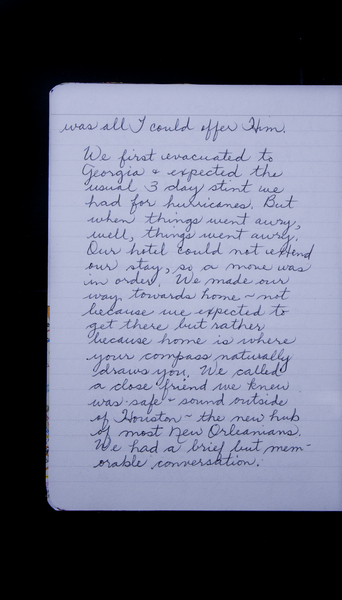 was all I could offer Him.
We first evacuated to
Georgia & expected the
usual 3 day stint we
had for hurricanes. But
when things went awry,
well, things went awry.
Our hotel could not extend
our stay, so a move was
in order. We made our
way towards home ~ not
because we expected to
get there but rather
because home is where
your compass naturally
draws you. We called
a close friend we knew
was safe & sound outside
of Houston ~ the new hub
of most New Orleanians.
We had a brief but mem-
orable conversation.